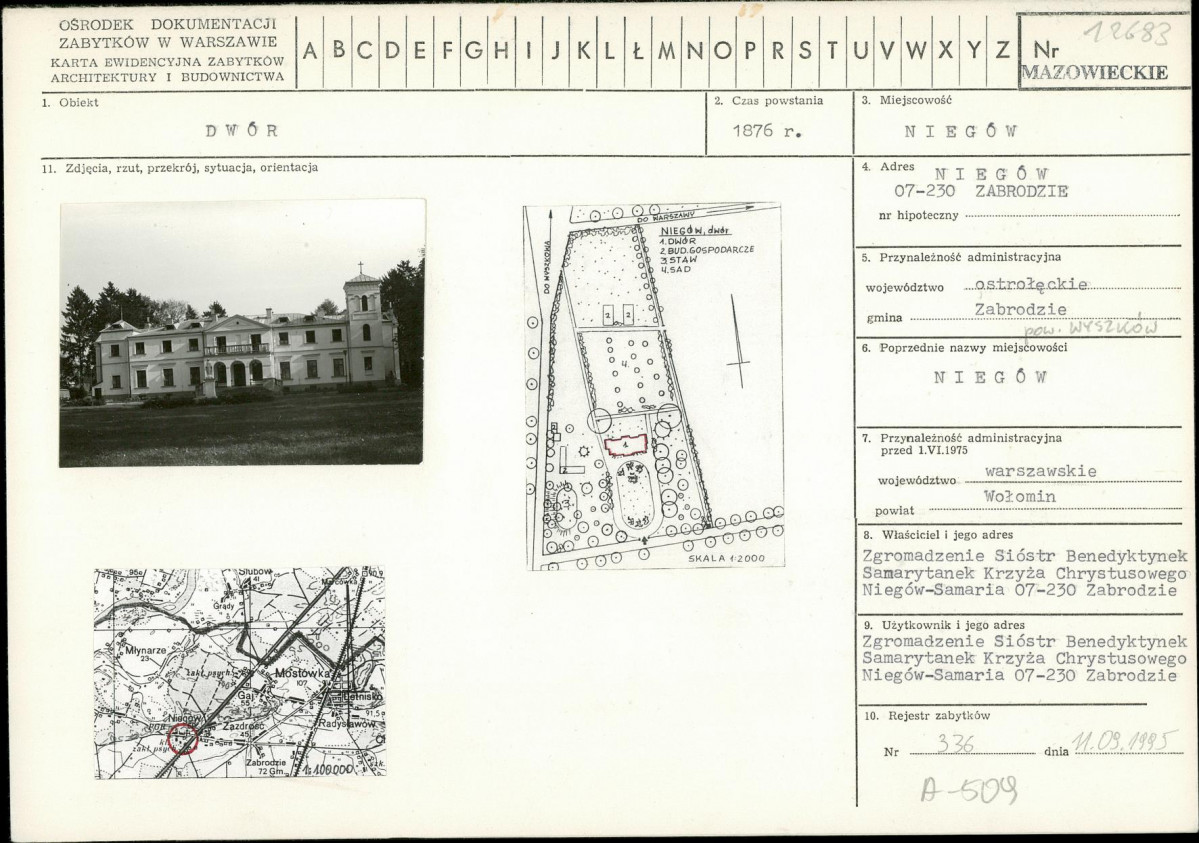 OŚRODEK DOKUMENTACJI
ZABYTKÓW W WARSZAWIE
KARTA EWIDENCYJNA ZABYTKÓW
ARCHITEKTURY I BUDOWNICTWA
A B C D E F G H I J K L Ł M N O P R S T U V W X Y Z
Nr 12683
MAZOWIECKIE
1. Obiekt
DWÓR
2. Czas powstania
1876 r.
3. Miejscowość
NIEGÓW
11. Zdjęcia, rzut, przekrój, sytuacja, orientacja
4. Adres NIEGÓW
07-230 ZABRODZIE
nr hipoteczny
5. Przynależność administracyjna
województwo ostrołęckie
gmina Zabrodzie
pow. WYSZKÓW
6. Poprzednie nazwy miejscowości
NIEGÓW
7. Przynależność administracyjna
przed 1.VI.1975
województwo warszawskie
powiat Wołomin
8. Właściciel i jego adres
Zgromadzenie Sióstr Benedyktynek
Samarytanek Krzyża Chrystusowego
Niegów-Samaria 07-230 Zabrodzie
9. Użytkownik i jego adres
Zgromadzenie Sióstr Benedyktynek
Samarytanek Krzyża Chrystusowego
Niegów-Samaria 07-230 Zabrodzie
10. Rejestr zabytków
Nr 336 dnia 11.09.1995
A-509
DO WARSZAWY
DO WYSZKOWA
NIEGÓW, dwór
1. DWÓR
2 BUD. GOSPODARCZE
3. STAW
4. SAD
2 2
4.
1
2
3
SKALA 1:2000
Słubów
41
Grądy
Młynarze
23
zakł. psych.
Mostówka
107
Gaj
55
Letnisko
91,5
Radysławów
Niegów
Zazdrość
45
zakł. psych.
Zabrodzie
72 Gm.
1:100000